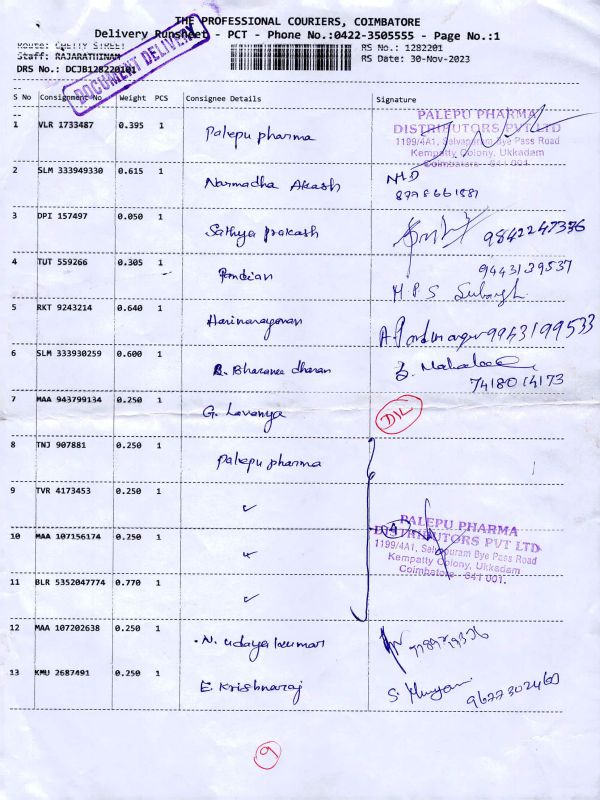 THE PROFESSIONAL COURIERS, COIMBATORE
Delivery Runsheet - PCT - Phone No.:0422-3505555 - Page No.:1
Route: CHETTY STREET RS No.: 1282201
Staff: RAJARATHINAM RS Date: 30-Nov-2023
DRS No.: DCJB128220101
DOCUMENT DELIVERY
S No Consignment No Weight PCS Consignee Details Signature
1 VLR 1733487 0.395 1 Palepu pharma
PALEPU PHARMA
DISTRIBUTORS PVT LTD
1199/4A1, Selvapuram Bye Pass Road
Kempatty Colony, Ukkadam
Coimbatore - 641 001.
2 SLM 333949330 0.615 1 Narmadha Akash
3 DPI 157497 0.050 1 Sathya prakash 9842247336
4 TUT 559266 0.305 1 Pandian 9443129537
M P S
5 RKT 9243214 0.640 1 Harinarayanan 9943199533
6 SLM 333930259 0.600 1 B. Bharanee dharan
7418014173
7 MAA 943799134 0.250 1 G. Lavanya D/L
8 TNJ 907881 0.250 1 Palepu pharma
9 TVR 4173453 0.250 1 ✓
10 MAA 107156174 0.250 1 ✓ 4
PALEPU PHARMA
DISTRIBUTORS PVT LTD
1199/4A1, Selvapuram Bye Pass Road
Kempatty Colony, Ukkadam
Coimbatore - 641 001.
11 BLR 5352047774 0.770 1 ✓
12 MAA 107202638 0.250 1 N. Udaya kumar
13 KMU 2687491 0.250 1 E. Krishnaraj 9677302460
9